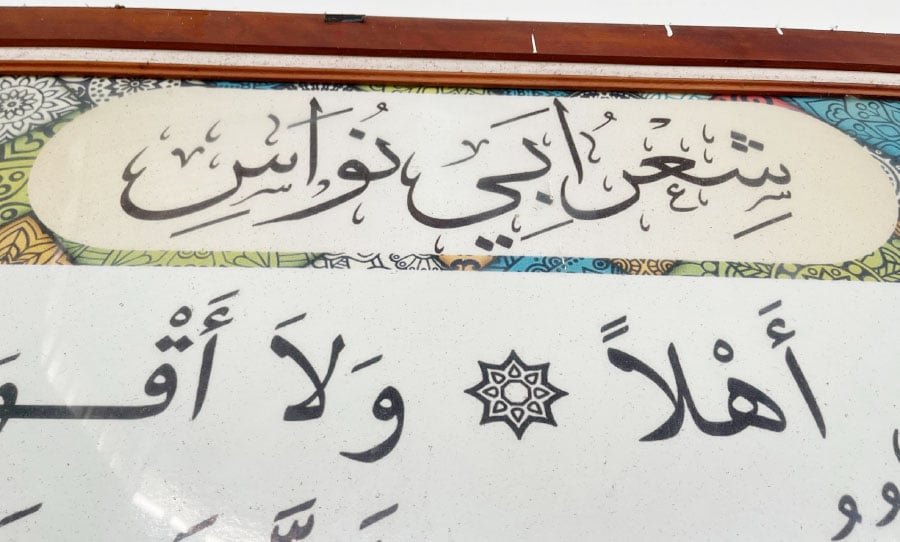 شِعْرُ ابِي نُوَاسِ
أَهْلاً ۞ وَلاَ أَقْوَ